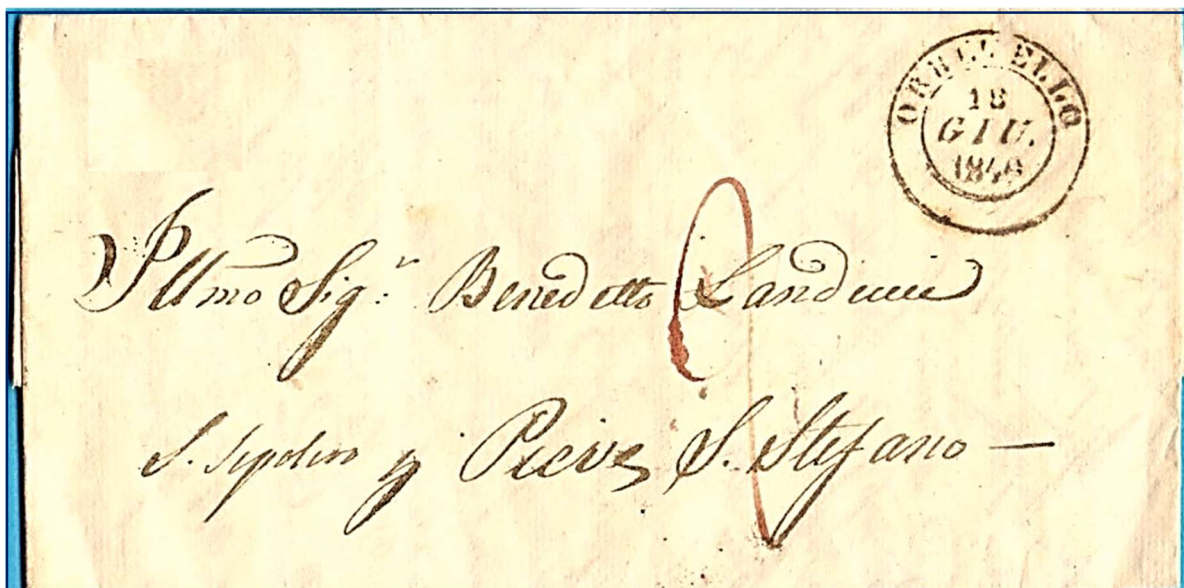 ORBETELLO
18
GIU.
1849
Illmo Sigr: Benedetto Landucci
S. Sepolcro p Pieve S. Stefano —